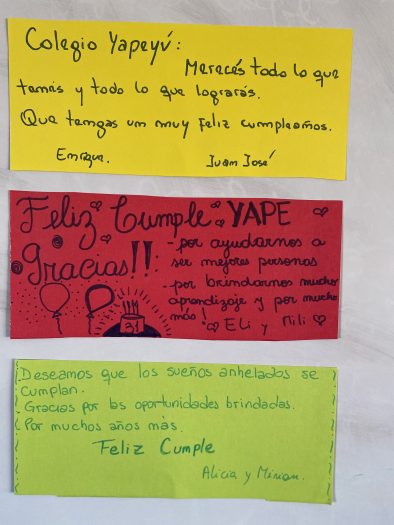 Colegio Yapeyú:
Merecés todo lo que
tenés y todo lo que lograrás.
Que tengas un muy Feliz cumpleaños.
Enrique.
Juan José
Feliz Cumple YAPE
Gracias!!
-por ayudarnos a
ser mejores personas
-por brindarnos mucho
aprendizaje y por mucho
más!
Eli y Mili
31
Deseamos que los sueños anhelados se
cumplan.
Gracias por las oportunidades brindadas.
Por muchos años más.
Feliz Cumple
Alicia y Mirian.